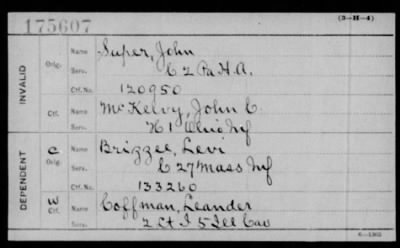 175607
(3-H-4)
INVALID
Orig.
Name Super, John
Serv. C 2 Pa H.A.
Ctf. No. 120950
Ctf.
Name McKelvy, John C.
Serv. H 1 Ohio Inf
DEPENDENT
C
Orig.
Name Brizzee, Levi
Serv. C 27 Mass Inf
Ctf. No. 133260
W
Ctf.
Name Coffman, Leander
Serv. 2 Lt I 5 Ill Cav
6-1302